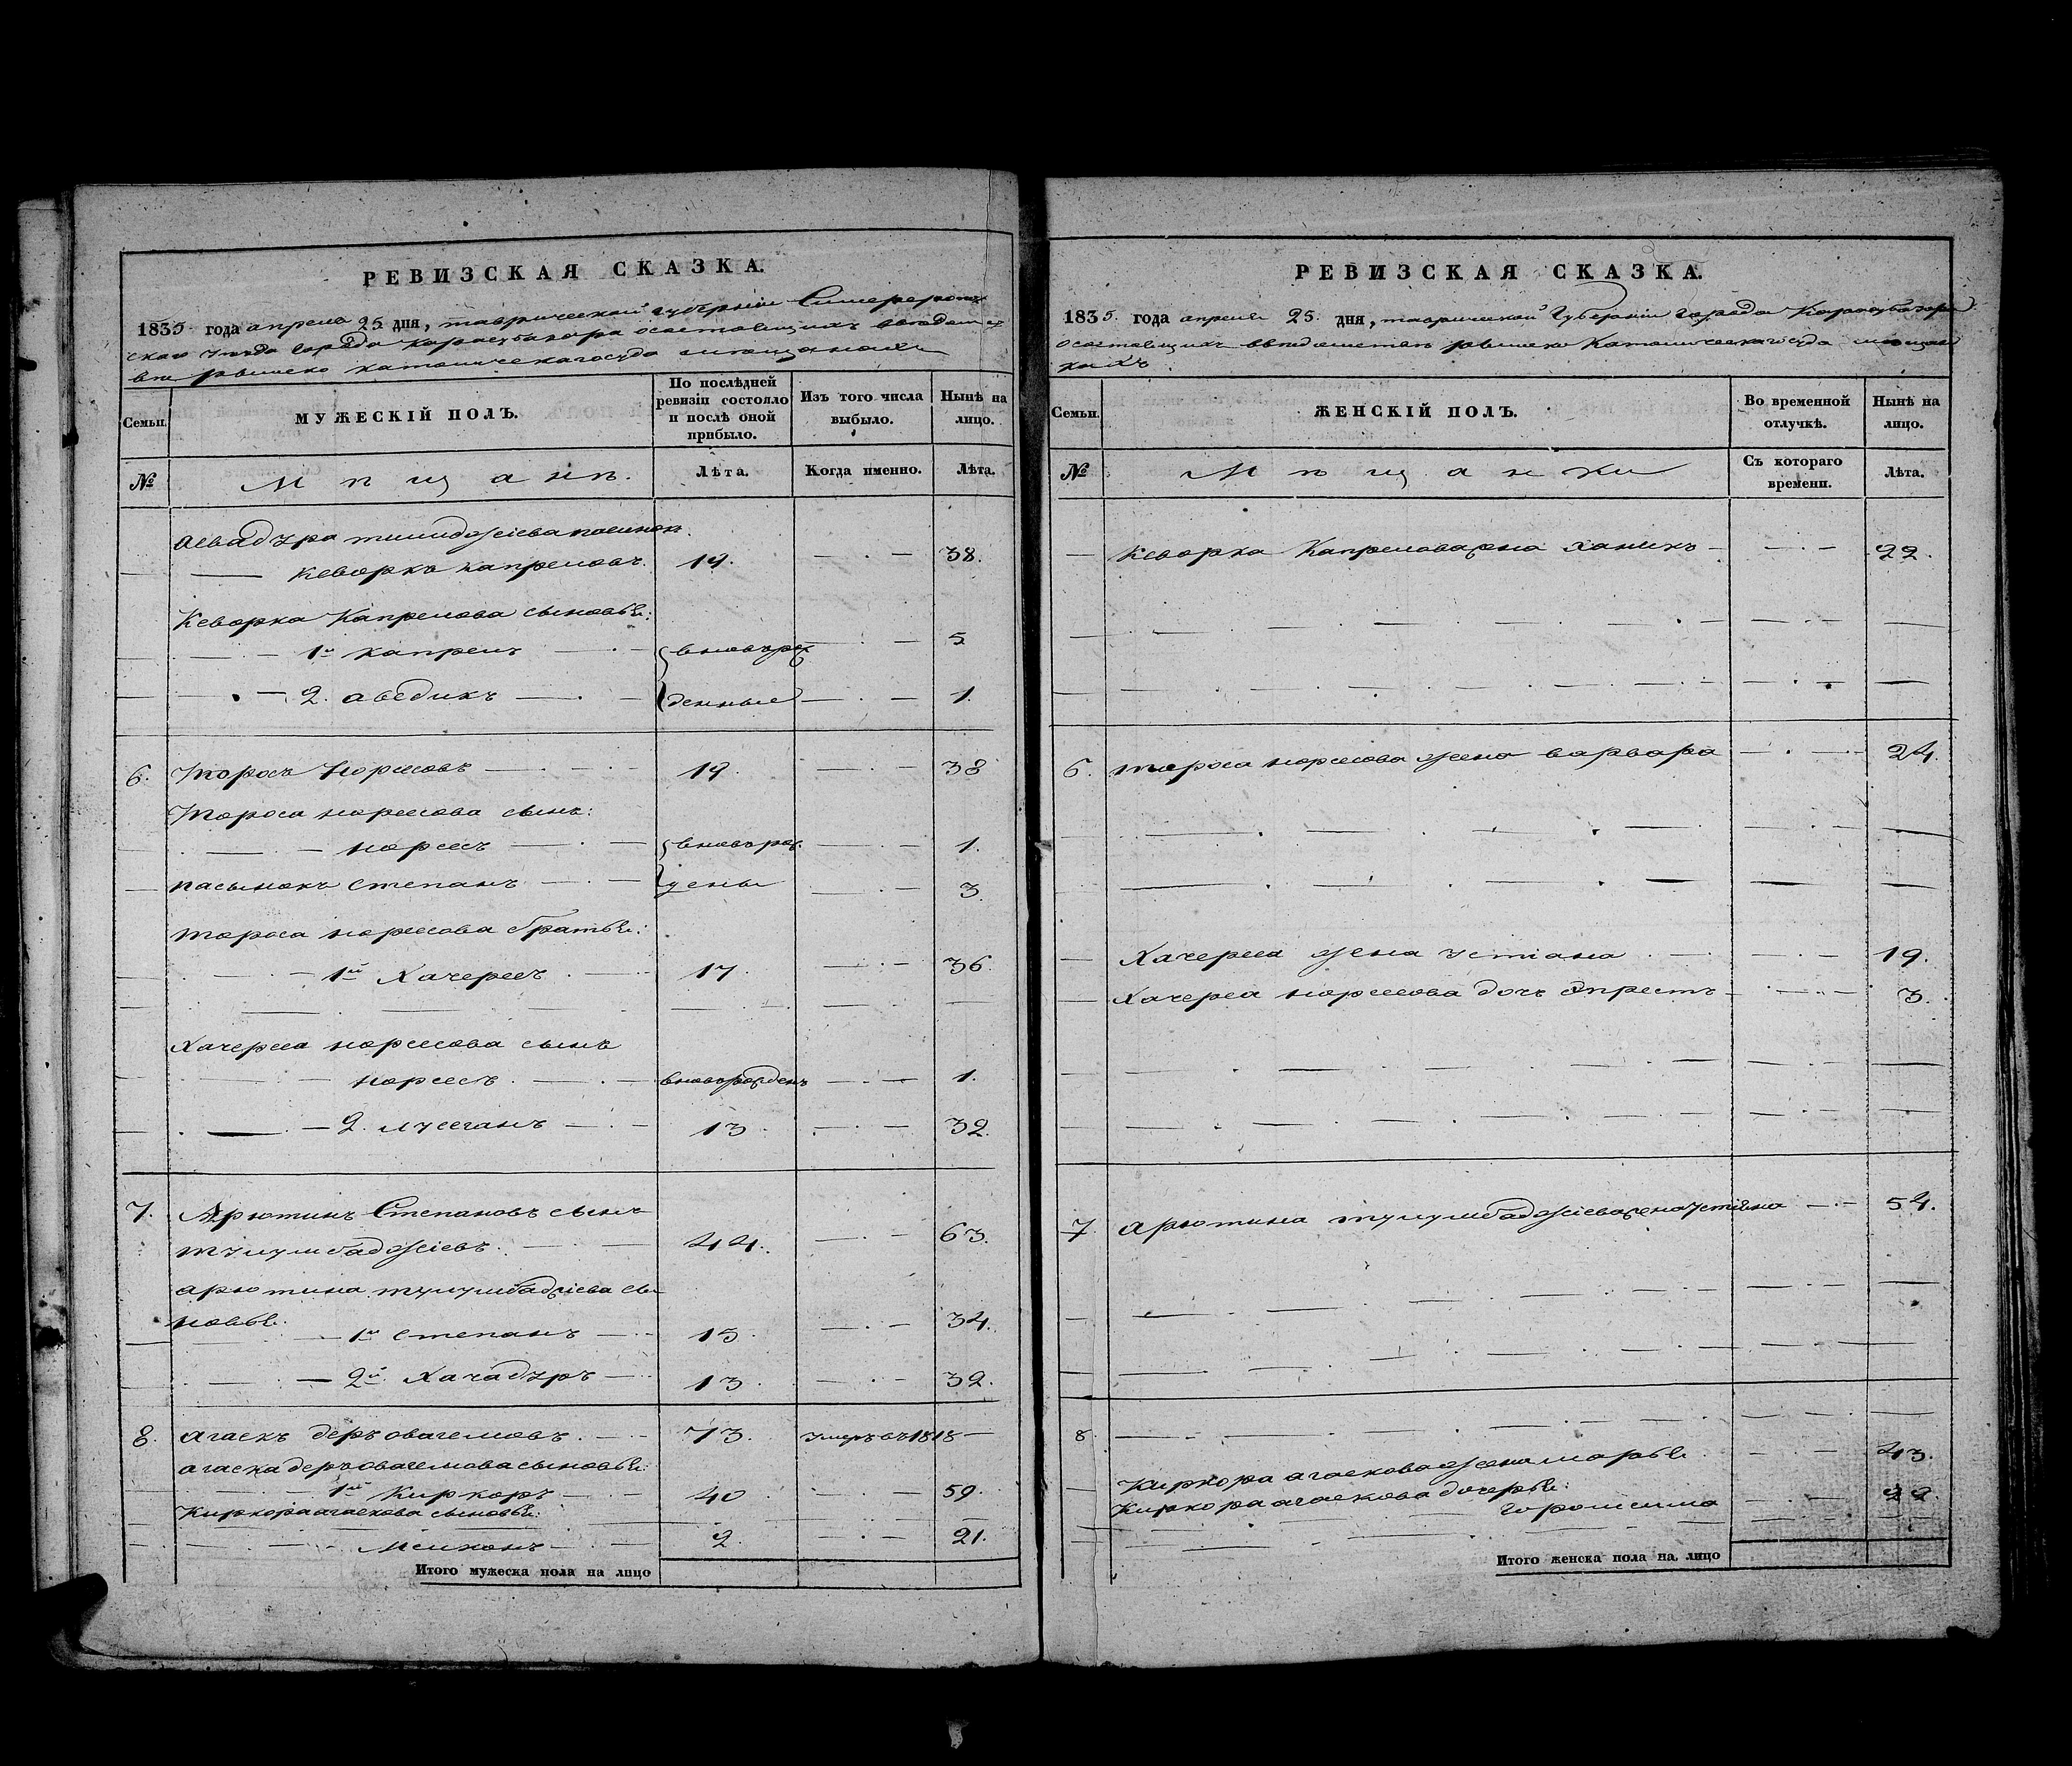 РЕВИЗСКАЯ СКАЗКА.
1835 года апреля 25 дня, таврической губерніи Симферополь
скаго уѣзда города Карасубазара о состоящихъ
римско католическаго суда мѣщанахъ
Семьи.
МУЖЕСКІЙ ПОЛЪ.
По послѣдней ревизіи состояло и послѣ оной прибыло.
Изъ того числа выбыло.
Нынѣ на лицо.
№
Мѣщанѣ.
Лѣта.
Когда именно.
Лѣта.
пасынокъ
Кеворкъ Капреловъ. 19. 38.
Кеворка Капрелова сыновья:
1й Капрелъ 5
вновьрож
2. аведикъ 1.
денные
6. Торосъ Норсесовъ 19. 38
Тороса норсесова сынъ:
норсесъ вновьрож. 1.
пасынокъ степанъ дены 3.
тороса норсесова братья:
1й Хачересъ 17. 36.
Хачереса норсесова сынъ
норсесъ вноворожденъ 1.
2. мусеганъ 13. 32.
7. Арютинъ Степановъ сынъ
тулумбаджіевъ 44. 63.
арютина тулумбаджіева сы
новья:
1й степанъ 15. 34.
2й Хачадуръ 13. 32.
8. агаскъ деръ овагемовъ 73. умеръ въ 1818
агаска деръовагемова сыновья:
1й Киркоръ 40 59.
Киркора агаскова сыновья:
Мелконъ 2. 21.
Итого мужеска пола на лицо
РЕВИЗСКАЯ СКАЗКА.
1835. года апреля 25. дня, таврической Губерніи города Карасубазара
о состоящихъ въ вѣдомствѣ римско Католическаго суда мѣщан
кахъ
Семьи.
ЖЕНСКІЙ ПОЛЪ.
Во временной отлучкѣ.
Нынѣ на лицо.
№
Мѣщанки
Съ котораго времени.
Лѣта.
Кеворка Капрелова жена Ханикъ 22.
6. тороса норсесова жена варвара 24.
Хачереса жена устіана 19.
Хачереса норсесова дочь 3.
7 арютина тулумбаджіева жена устіяна 54.
8
Киркора агаскова жена марья 43.
Киркора агаскова дочерья:
22.
Итого женска пола на лицо